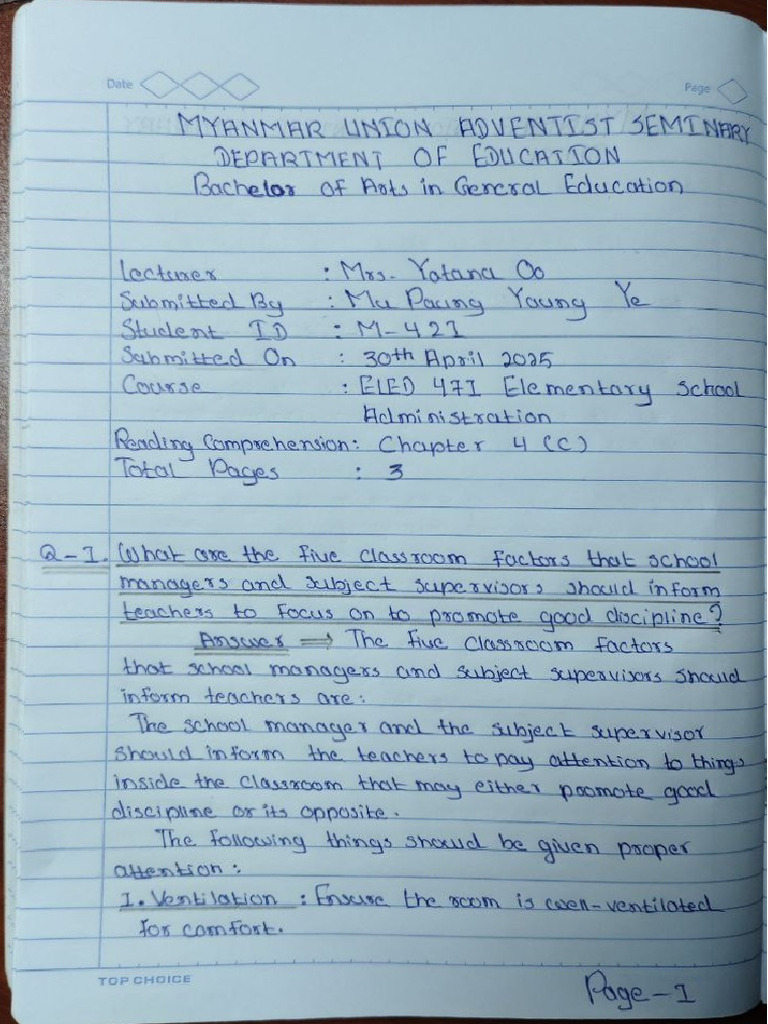 Date
Page
MYANMAR UNION ADVENTIST SEMINARY
DEPARTMENT OF EDUCATION
Bachelor of Arts in General Education
Lecturer : Mrs. Yatana Oo
Submitted By : Mu Paung Young Ye
Student ID : M-421
Submitted On : 30th April 2025
Course : ELED 471 Elementary School
Administration
Reading Comprehension: Chapter 4 (C)
Total Pages : 3
Q-1. What are the five classroom factors that school
managers and subject supervisors should inform
teachers to focus on to promote good discipline?
Answer ⇒ The five classroom factors
that school managers and subject supervisors should
inform teachers are:
The school manager and the subject supervisor
should inform the teachers to pay attention to things
inside the classroom that may either promote good
discipline or its opposite.
The following things should be given proper
attention:
1. Ventilation : Ensure the room is well-ventilated
for comfort.
TOP CHOICE
Page-1